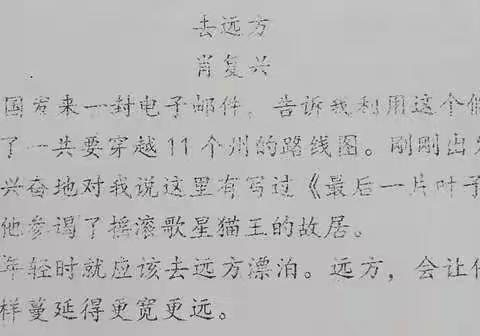 去远方
肖复兴
国发来一封电子邮件，告诉我利用这个假
了一共要穿越11个州的路线图。刚刚出发
兴奋地对我说这里有写过《最后一片叶子
他参谒了摇滚歌星猫王的故居。
年轻时就应该去远方漂泊。远方，会让他
样蔓延得更宽更远。